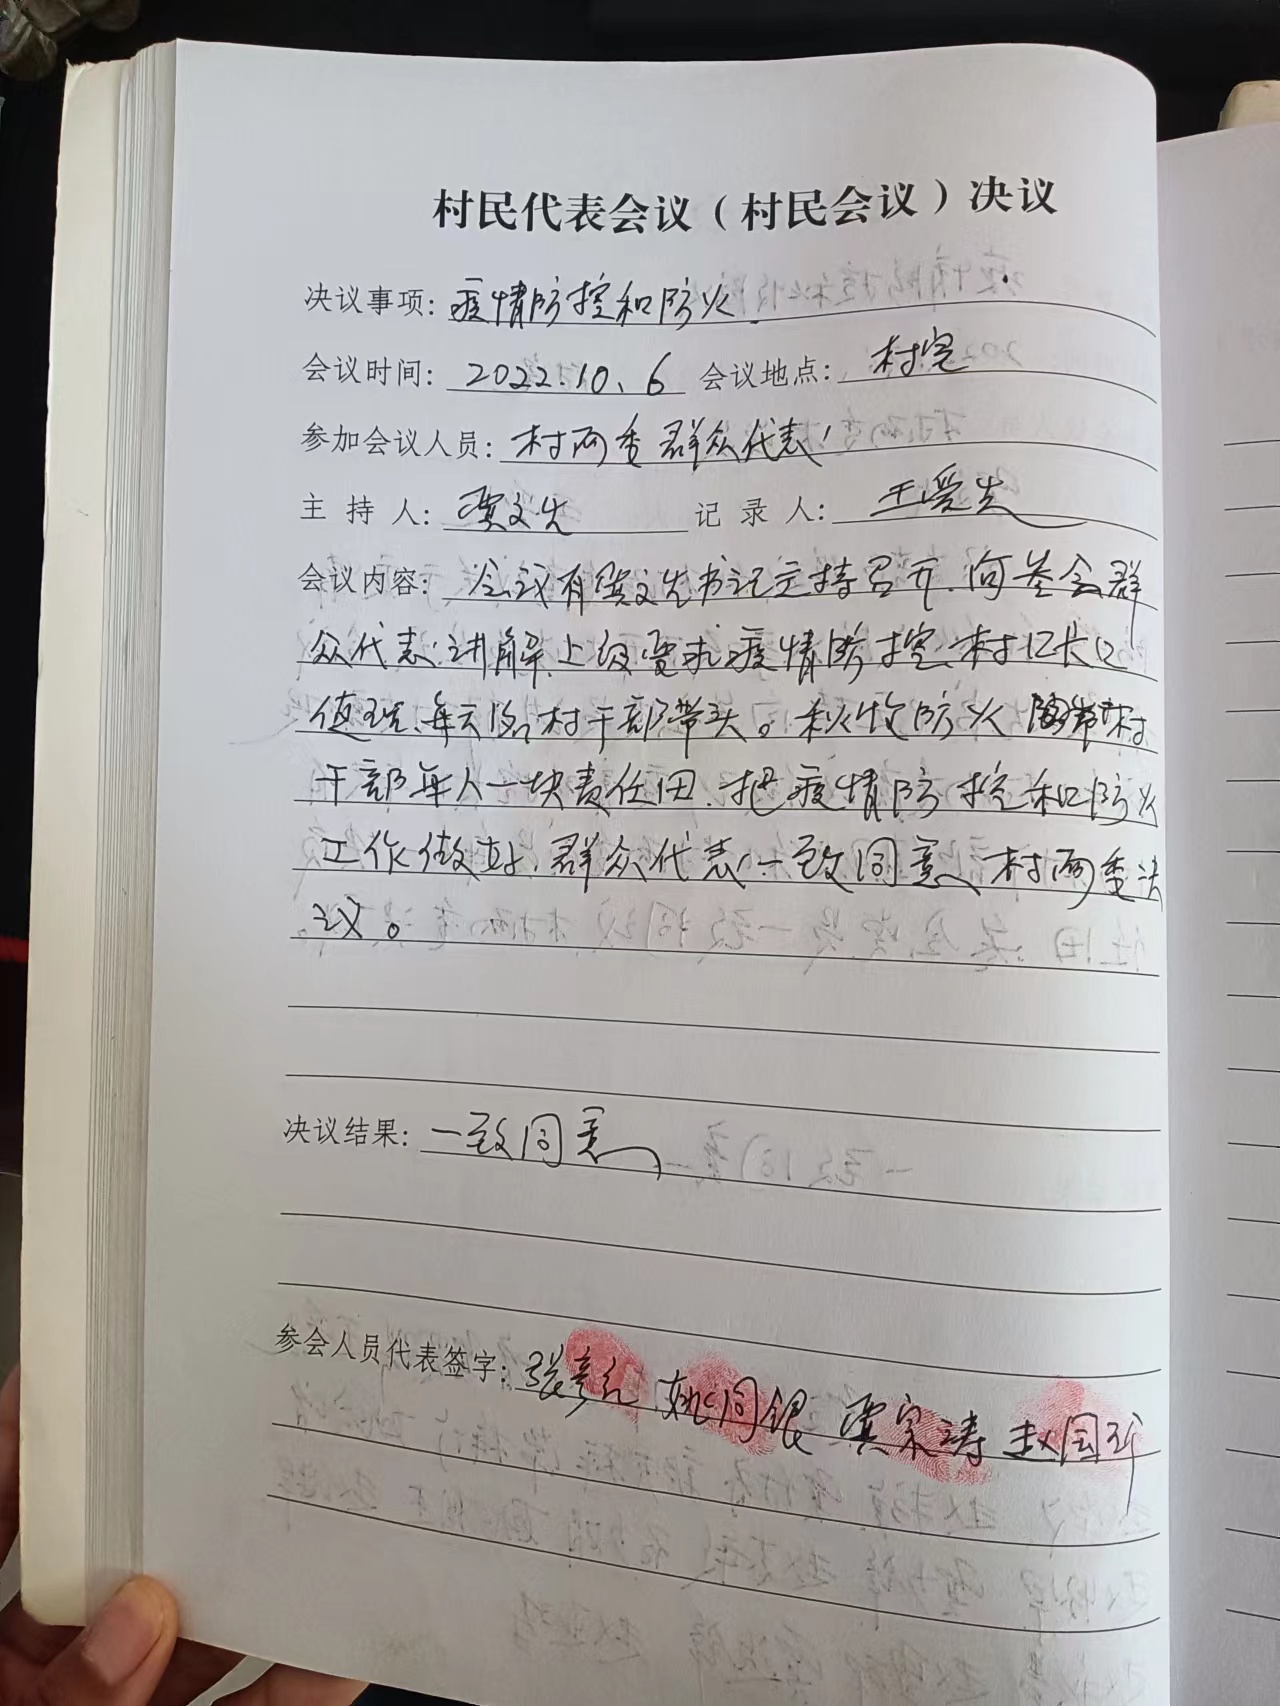 村民代表会议（村民会议）决议
决议事项：疫情防控和防火
会议时间：2022.10.6 会议地点：村室
参加会议人员：村两委 群众代表
主 持 人：贾文先 记 录 人：王爱先
会议内容：会议有贾文先书记主持召开，向参会群
众代表讲解上级要求疫情防控，村口长口
值班，每天 村干部带头。秋收防火 村
干部每人一块责任田，把疫情防控和防火
工作做好，群众代表一致同意村两委决
议。
决议结果：一致同意
参会人员代表签字：张彦 姚同银 贾宗涛 赵国